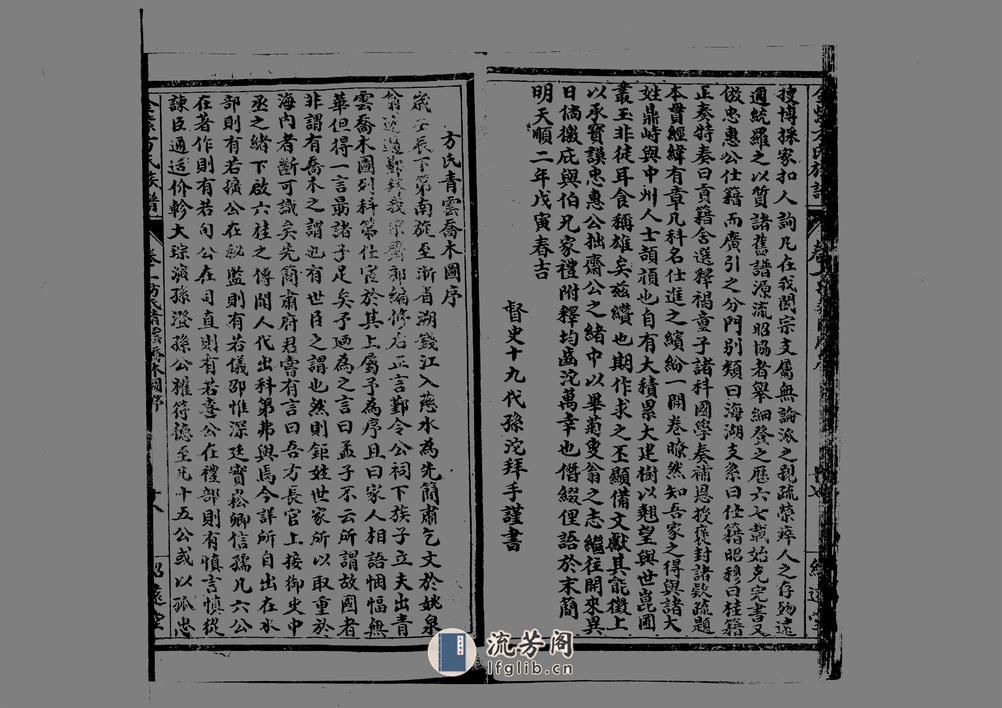 搜博採家扣人詢凡在我閣宗支屬無論派之親疏榮瘁人之存歿遠
邇統羅之以質諸舊譜源流昭協者舉細登之歷六七載始克完書又
倣忠惠公仕籍而廣引之分門別類曰海湖支系曰仕籍昭穆曰桂籍
正奏特奏曰貢籍舍選釋褐童子諸科國學奏補恩授褒封諸欵疏題
本貫經緯有章凡科名仕進之繽紛一開卷瞭然知吾家之得與諸大
姓鼎峙與中州人士頡頏也自有大積累大建樹以翹望與世崑圃
叢玉非徒耳食稱雄矣茲纘也期作求之丕顯備文獻其能徵上
以承質謨忠惠公拙齋公之緒中以畢菊叟翁之志繼往開來異
日倘徼庇與伯兄家禮附釋均齒沱萬幸也僭綴俚語於末簡
明天順二年戊寅春吉
督史十九代孫沱拜手謹書
方氏青雲喬木圖序
歲壬辰下第南旋至浙省溯錢江入慈水為先簡肅乞文於姚泉
翁
雲喬木圖列科第仕宦於其上屬予為序且曰家人相語悃愊無
華但得一言最諸子足矣予迺為之言曰孟子不云所謂故國者
非謂有喬木之謂也有世臣之謂也然則鉅姓世家所以取重於
海內者斷可識矣先簡肅府君嘗有言曰吾方長官上接御史中
丞之緒下啟六桂之傳聞人代出科第弗與焉今詳所自出在水
部則有若擴公在秘監則有若儀邵惟深廷實崧卿信孺凡六公
在著作則有若旬公在司直則有若壴公在禮部則有慎言慎從
諫臣通适价軫大琮演孫澄孫公權符德至凡十五公或以孤忠
方氏族譜
方氏青雲喬木圖序
流芳阁
lfglib.cn